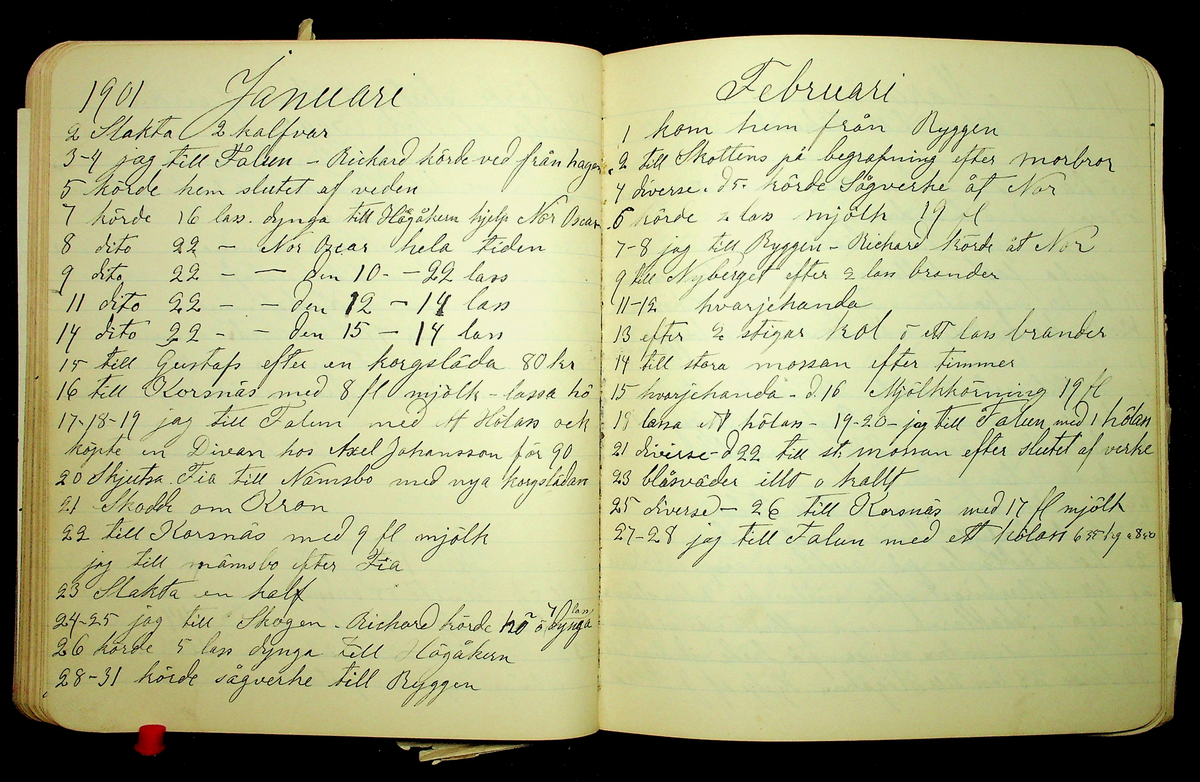 1901 Januari
2 Slakta 2 kalfvar
3-4 jag till Falun - Richard körde ved från hagen
5 körde hem slutet af veden
7 körde 16 lass dynga till Högåkern hjelp Nor Oscar
8 dito 22 - Nor Oscar hela tiden
9 dito 22 - - den 10 - - 22 lass
11 dito 22 - - den 12 - 14 lass
14 dito 22 - - den 15 - 14 lass
15 till Gustafs efter en korgsläda 80 kr
16 till Korsnäs med 8 fl mjölk - lassa hö
17-18-19 jag till Falun med ett Hölass ock
köpte en Divan hos Axel Johansson för 90
20 Skjutsa Fia till Nämsbo med nya korgslädan
21 Skodde om Kron
22 till Korsnäs med 9 fl mjölk
jag till nämsbo efter Fia
23 Slakta en kalf
24-25 jag till Skogen - Richard körde hö o 7 lass dynga
26 körde 5 lass dynga till Högåkern
28-31 körde sågverke till Ryggen
Februari
1 kom hem från Ryggen
2 till Skottens på begrafning efter morbror
4 diverse. d 5. körde Sågverke åt Nor
6 körde 2 lass mjölk 19 fl
7-8 jag till Ryggen - Richard körde åt Nor
9 till Nyberget efter 2 lass brander
11-12 hvarjehanda
13 efter 2 stigar kol o ett lass brander
14 till stora mossan efter timmer
15 hvarjehanda - d. 16 Mjölkkörning 19 fl
18 lassa ett hölass - 19-20 - jag till Falun med 1 hölass
21 diverse - d 22 till st. mossan efter slutet af verke
23 blåsväder illt o kallt
25 diverse - 26 till Korsnäs med 17 fl mjölk
27-28 jag till Falun med ett hölass